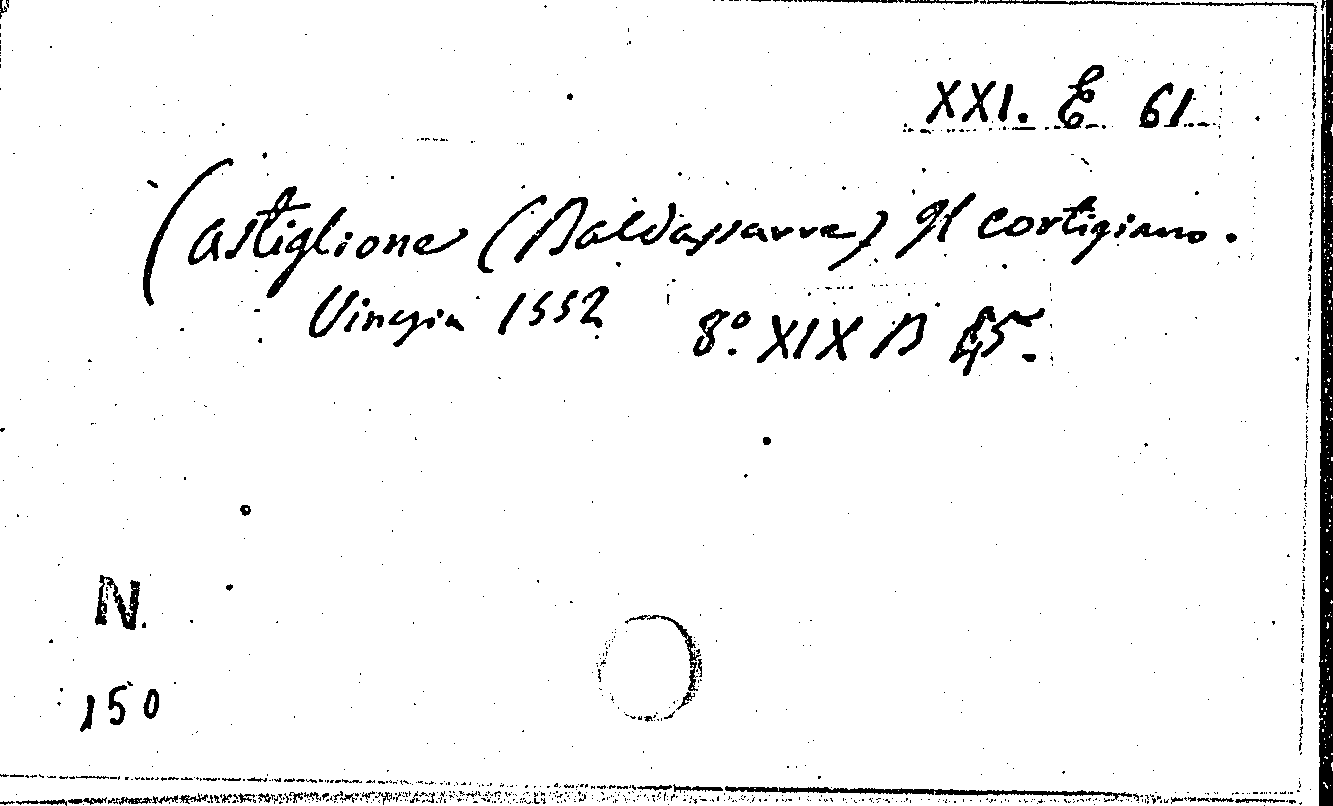 XXI. E 61
Castiglione (Baldassarre) Il cortigiano.
Vinegia 1552 8º. XIX B 45.
N.
150